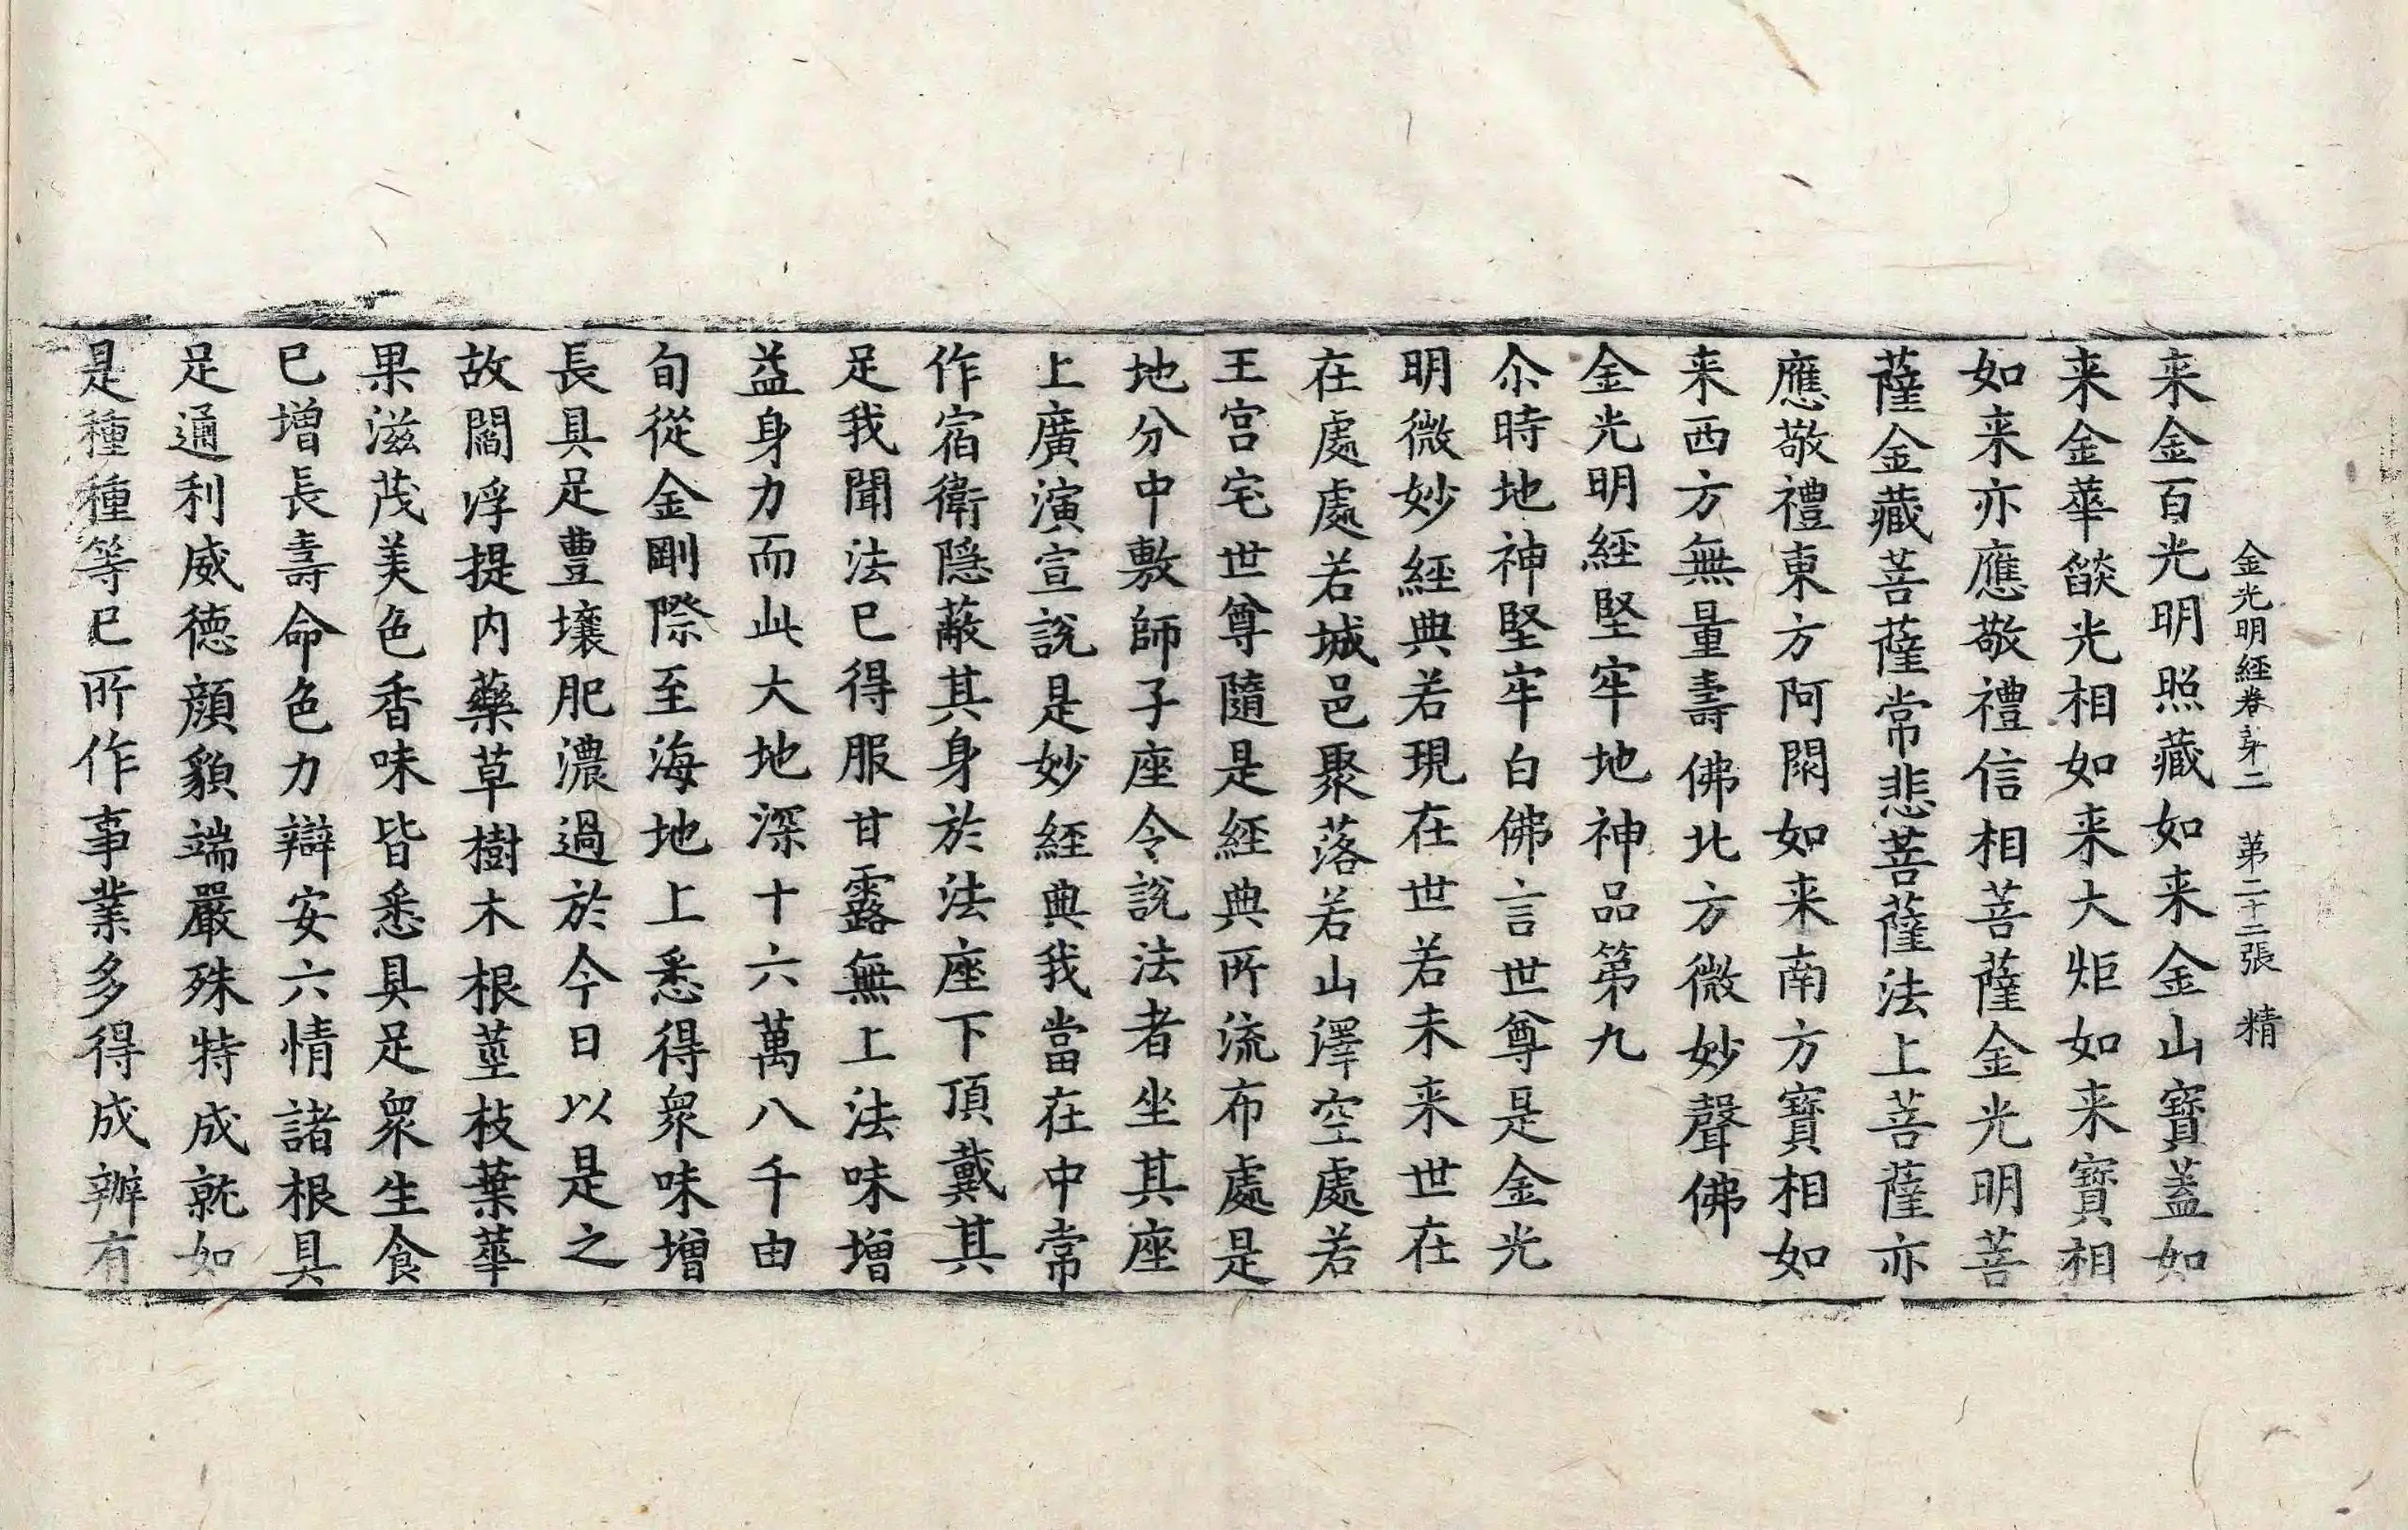 金光明經卷苐二 苐二十二張 精
来金百光明照藏如来金山寶蓋如
来金華燄光相如来大炬如来寶相
如来亦應敬禮信相菩薩金光明菩
薩金藏菩薩常悲菩薩法上菩薩亦
應敬禮東方阿閦如来南方寶相如
来西方無量壽佛北方微妙聲佛
金光明經堅牢地神品第九
尒時地神堅牢白佛言世尊是金光
明微妙經典若現在世若未来世在
在處處若城邑聚落若山澤空處若
王宫宅世尊隨是經典所流布處是
地分中敷師子座令說法者坐其座
上廣演宣說是妙經典我當在中常
作宿衛隱蔽其身於法座下頂戴其
足我聞法已得服甘露無上法味增
益身力而此大地深十六萬八千由
旬從金剛際至海地上悉得衆味增
長具足豊壤肥濃過於今日以是之
故閻浮提内藥草樹木根莖枝葉華
果滋茂美色香味皆悉具足衆生食
已增長壽命色力辯安六情諸根具
足通利威徳顔貌端嚴殊特成就如
是種種等已所作事業多得成辦有